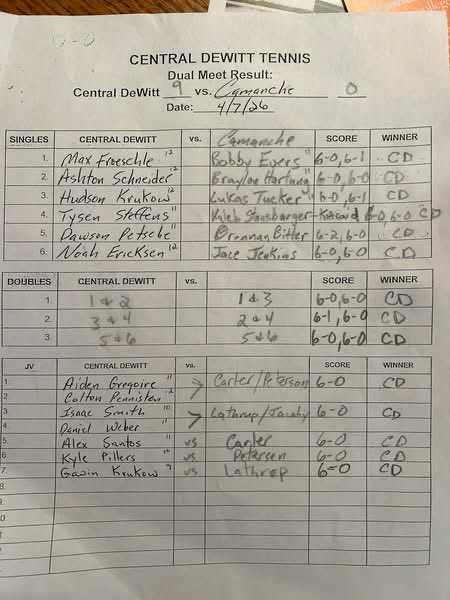 0-0
CENTRAL DEWITT TENNIS
Dual Meet Result:
Central DeWitt 9 vs. Camanche 0
Date: 4/7/26
SINGLES CENTRAL DEWITT vs. Camanche SCORE WINNER
1. Max Froeschle 12 Bobby Evers 11 6-0, 6-1 CD
2. Ashton Schneider 12 Braylon Hartung 11 6-0, 6-0 CD
3. Hudson Krukow 12 Lukas Tucker 11 6-0, 6-1 CD
4. Tysen Steffens 11 Kaleb Stansbarger- 6-0, 6-0 CD
5. Dawson Petsche 11 Brennan Bitter 6-2, 6-0 CD
6. Noah Ericksen 12 Jace Jenkins 6-0, 6-0 CD
DOUBLES CENTRAL DEWITT vs. SCORE WINNER
1. 1 & 2 1 & 3 6-0, 6-0 CD
2. 3 & 4 2 & 4 6-1, 6-0 CD
3. 5 & 6 5 & 6 6-0, 6-0 CD
JV CENTRAL DEWITT vs. SCORE WINNER
1. Aiden Gregoire 11 > Carter/Peterson 6-0 CD
2. Colton Penniston 12
3. Isaac Smith 10 > Lathrup/Jacoby 6-0 CD
4. Daniel Weber 11
5. Alex Santos 11 vs Carter 6-0 CD
6. Kyle Pillers 10 vs. Petersen 6-0 CD
7. Gavin Krukow 9 vs. Lathrep 6-0 CD
8.
9.
10
11
12
13